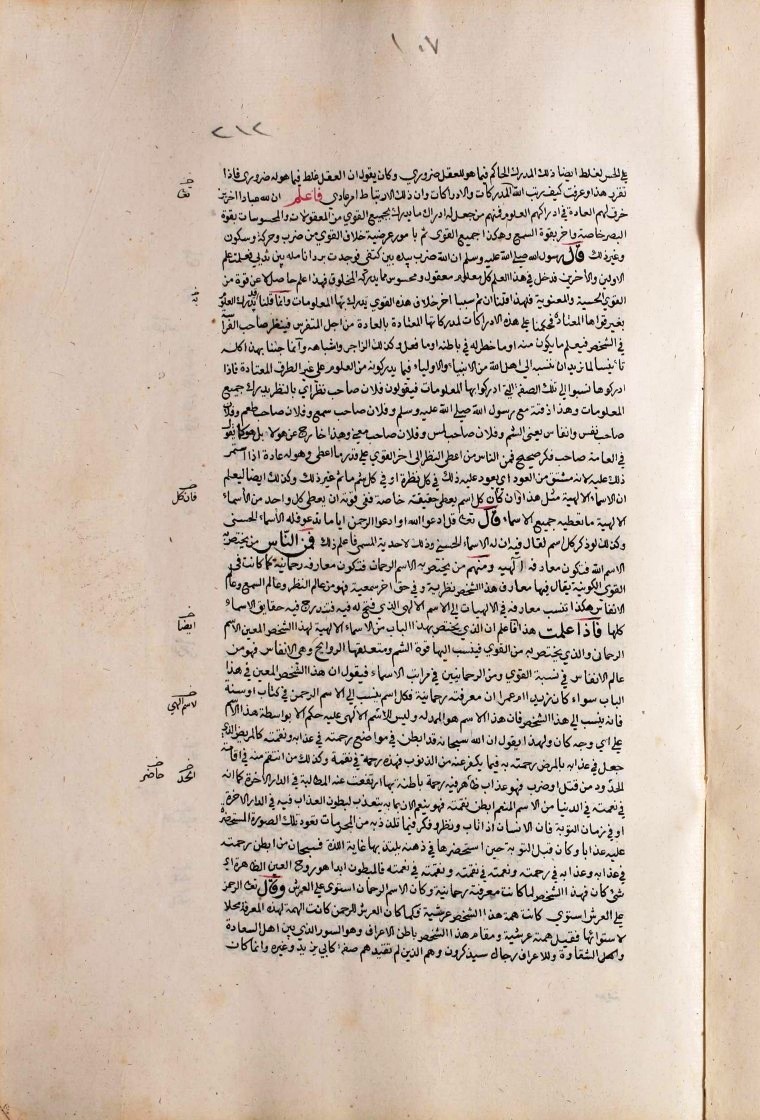 ١٠٧
٢١٢
على الحس بغلط ايضا ذلك المدرك الحاكم فيما هو للعقل ضروري وكان يقول ان العقل غلط فيما هو له ضروري فاذا
تقرر هذا وعرفت كيف رتب الله المدركات والادراكات وان ذلك الارتباط امر عادي فاعلم ان لله عبادا اخرين
خرق لهم العادة في ادراكهم العلوم فمنهم من جعل له ادراك ما يدرك بجميع القوي من المعقولات والمحسوسات بقوة
البصر خاصة واخر بقوة السمع وهكذا جميع القوي ثم بامور عرضية خلاف القوي من ضرب وحركة وسكون
وغير ذلك قال رسول الله صلى الله عليه وسلم ان الله ضرب بيده بين كتفي فوجدت برد انامله بين ثديي فعلمت علم
الاولين والآخرين فدخل في هذا العلم كل معلوم معقول ومحسوس مما يدركه المخلوق فهذا علم حاصل لا عن قوة من
القوي الحسية والمعنوية فلهذا قلنا ان ثم سببا اخر خلاف هذه القوي يدرك بها المعلومات وانما قلنا قد تدرك العلوم
بغير قواها المعتادة فحكمنا على هذه الادراكات لمدركاتها المعتادة بالعادة من اجل المتفرس فينظر صاحب الفراسة
في الشخص فيعلم ما يكون منه او ما خطر له في باطنه او ما فعل وكذلك الزاجر واشباهه وانما جئنا بهذا كله
تانيسا لما نريد ان ننسبه الى اهل الله من الانبياء والاولياء فيما يدركونه من العلوم على غير الطرق المعتادة فاذا
ادركوها نسبوا الى تلك الصفة التي ادركوا بها المعلومات فيقولون فلان صاحب نظر اي بالنظر يدرك جميع
المعلومات وهذا ذقته مع رسول الله صلى الله عليه وسلم وفلان صاحب سمع وفلان صاحب طعم وفلان
صاحب نفس وانفاس يعني الشم وفلان صاحب لمس وفلان صاحب معنى وهذا خارج عن هولاء بل هو كما يقول
في العامة صاحب فكر صحيح فمن الناس من اعطى النظر الى اخر القوي على قدر ما اعطى وهو له عادة اذا استمر
ذلك عليه لانه مشتق من العود اي يعود عليه ذلك في كل نظرة او في كل شم ما ثم غير ذلك وكذلك ايضا ليعلم
ان الاسماء الالهية مثل هذا وان كان كل اسم يعطي حقيقة خاصة ففي قوته ان يعطي كل واحد من الاسماء
الالهية ما تعطيه جميع الاسماء قال تعالى قل ادعوا الله او ادعوا الرحمن ايا ما تدعو فله الاسماء الحسنى
وكذلك لو ذكر كل اسم لقال فيه ان له الاسماء الحسنى وذلك لاحدية المسمى فاعلم ذلك فمن الناس من يختص به
الاسم الله فتكون معارفه الهية ومنهم من يختص به الاسم الرحمان فتكون معارفه رحمانية كما كانت في
القوي الكونية يقال فيها معارف هذا الشخص نظرية وفي حق اخر سمعية فهو من عالم النظر وعالم السمع وعالم
الانفاس هكذا تنسب معارفه في الالهيات الى الاسم الالهي الذي فتح له فيه فتندرج فيه حقايق الاسماء
كلها فاذا علمت هذا فاعلم ان الذي يختص بهذا الباب من الاسماء الالهية لهذا الشخص المعين الاسم
الرحمان والذي يختص به من القوي فينسب اليها قوة الشم ومتعلقها الروايح وهي الانفاس فهو من
عالم الانفاس في نسبة القوي ومن الرحمانيين في مراتب الاسماء فيقول ان هذا الشخص المعين في هذا
الباب سواء كان زيدا او عمرا ان معرفته رحمانية فكل اسم ينسب الى الاسم الرحمن في كتاب او سنة
فانه ينسب الى هذا الشخص فان هذا الاسم هو الممد له وليس للاسم الالهي عليه حكم الا بواسطة هذا الاسم
على اي وجه كان ولهذا يقول ان الله سبحانه قد ابطن في مواضع رحمته في عذابه ونقمته كالمريض الذي
جعل في عذابه بالمرض رحمته به فيما يكفر عنه من الذنوب فهذه رحمة في نقمة وكذلك من انتقم منه في اقامة
الحدود من قتل او ضرب فهو عذاب ظاهر فيه رحمة باطنة بها ارتفعت عنه المطالبة في الدار الآخرة كما انه
في نعمته في الدنيا من الاسم المنعم ابطن نقمته فهو ينعم الان بما به يتعذب لبطون العذاب فيه في الدار الآخرة
او في زمان التوبة فان الانسان اذا تاب ونظر وفكر فيما تلذذ به من المحرمات تعود تلك الصورة المستحضرة
عليه عذابا وكان قبل التوبة حين استحضرها في ذهنه يلتذ بها غاية اللذة فسبحان من ابطن رحمته
في عذابه وعذابه في رحمته ونعمته في نقمته ونقمته في نعمته فالمبطون ابدا هو روح العين الظاهرة اي
شي كان فهذا الشخص لما كانت معرفته رحمانية وكان الاسم الرحمان استوى على العرش وقال تعالى الرحمن
على العرش استوي كانت همة هذا الشخص عرشية فكما كان العرش للرحمن كانت الهمة لهذه المعرفة محلا
لاستوائها فقيل همته عرشية ومقام هذا الشخص باطن الاعراف وهو السور الذي بين اهل السعادة
واهل الشقاوة وللاعراف رجال سيذكرون وهم الذين لم تقيدهم صفة كابي يزيد وغيره وانما كان
فان كل
ايضا
لاسم الهي
الحد
حاضر